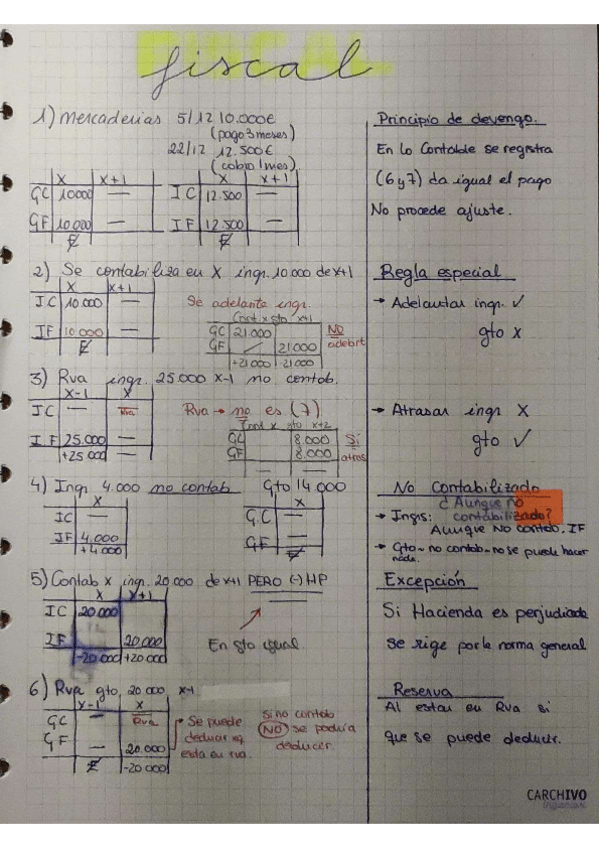 fiscal
1) Mercaderias 5/12 10.000€
(pago 3 meses)
22/12 12.500€
(cobro 1 mes)
X X+1
GC 10000 —
GF 10.000 —
X X+1
IC 12.500 —
IF 12.500 —
Principio de devengo.
En lo Contable se registra
(6 y 7) da igual el pago
No procede ajuste.
2) Se contabiliza en X ingr. 10.000 de X+1
X X+1
IC 10.000 —
IF 10.000 —
Se adelanta ingr.
Cont x gto x+1
GC 21.000
GF 21.000
+21.000 -21.000
NO
Regla especial
→ Adelantar ingr. ✓
gto X
3) Rva ingr. 25.000 X-1 no contab.
X-1 X
IC — Rva
IF 25.000 —
+25.000 —
Rva → no es (7)
Cont x gto x+2
GC 8.000
GF 8.000
— —
Si
atras
→ Atrasar ingr X
gto ✓
4) Ingr 4.000 no contab Gto 14.000
X
IC —
IF 4.000
+4.000
X
GC —
GF —
No Contabilizado
¿Aunque no
contabilizado?
→ Ingrs:
Aunque No contab. IF
→ Gto - no contab - no se puede hacer
nada.
5) Contab X ingr. 20.000 de X+1 PERO (-) HP
X X+1
IC 20.000
IF 20.000
-20.000 +20.000
En gto igual
Excepción
Si Hacienda es perjudicada
se rige por la norma general
6) Rva gto, 20.000 X-1
X-1 X
GC — Rva
GF — 20.000
-20.000
Se puede
deducir xq
esta en rva.
Si no contab
NO se podria
deducir.
Reserva
Al estar en Rva si
que se puede deducir.
CARCHIVO